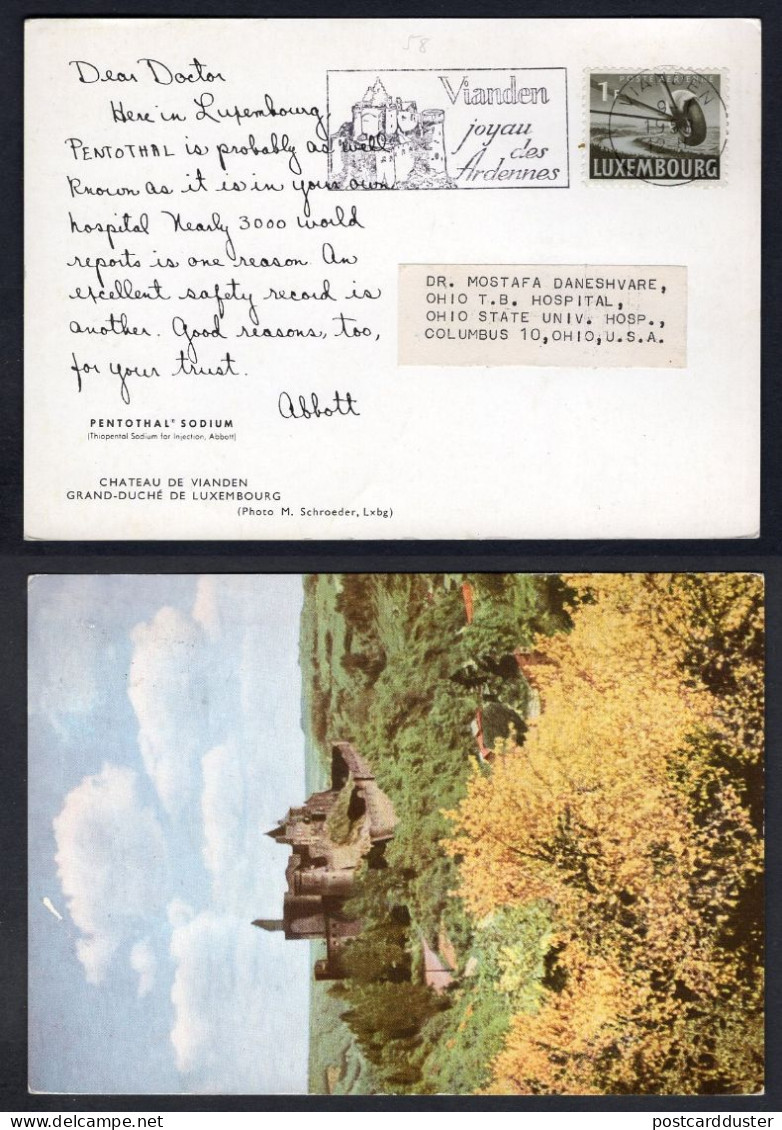 58
Dear Doctor
Here in Luxembourg,
PENTOTHAL is probably as well
known as it is in your own
hospital Nearly 3000 world
reports is one reason. An
excellent safety record is
another. Good reasons, too,
for your trust.
Abbott
PENTOTHAL® SODIUM
(Thiopental Sodium for Injection, Abbott)
CHATEAU DE VIANDEN
GRAND-DUCHÉ DE LUXEMBOURG
(Photo M. Schroeder, Lxbg)
Vianden
joyau
des
Ardennes
POSTE AÉRIENNE
1F
VIANDEN
LUXEMBOURG
DR. MOSTAFA DANESHVARE,
OHIO T.B. HOSPITAL,
OHIO STATE UNIV. HOSP.,
COLUMBUS 10,OHIO,U.S.A.
postcardduster